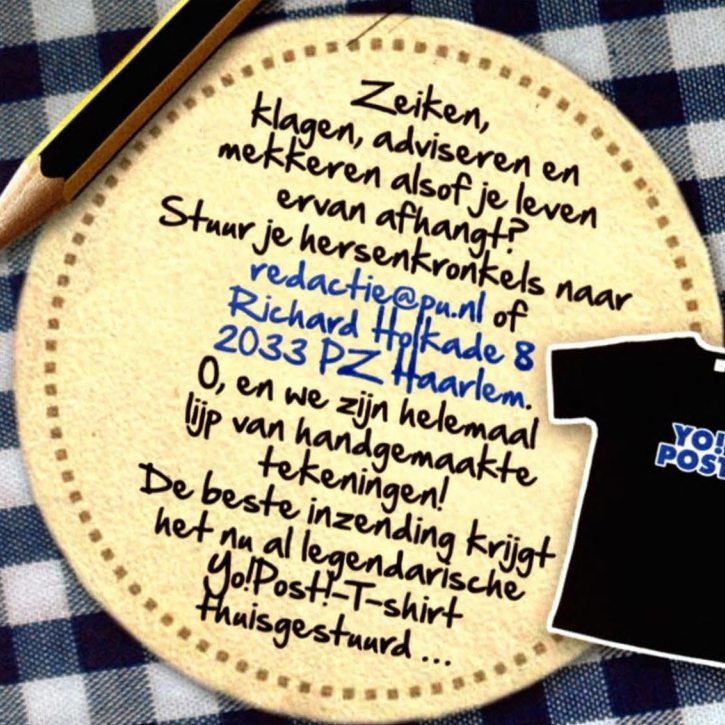 Zeiken,
klagen, adviseren en
mekkeren alsof je leven
ervan afhangt?
Stuur je hersenkronkels naar
redactie@pu.nl of
Richard Holkade 8
2033 PZ Haarlem.
O, en we zijn helemaal
lijp van handgemaakte
tekeningen!
De beste inzending krijgt
het nu al legendarische
Yo!Post!-T-shirt
thuisgestuurd ...
YO!
POST